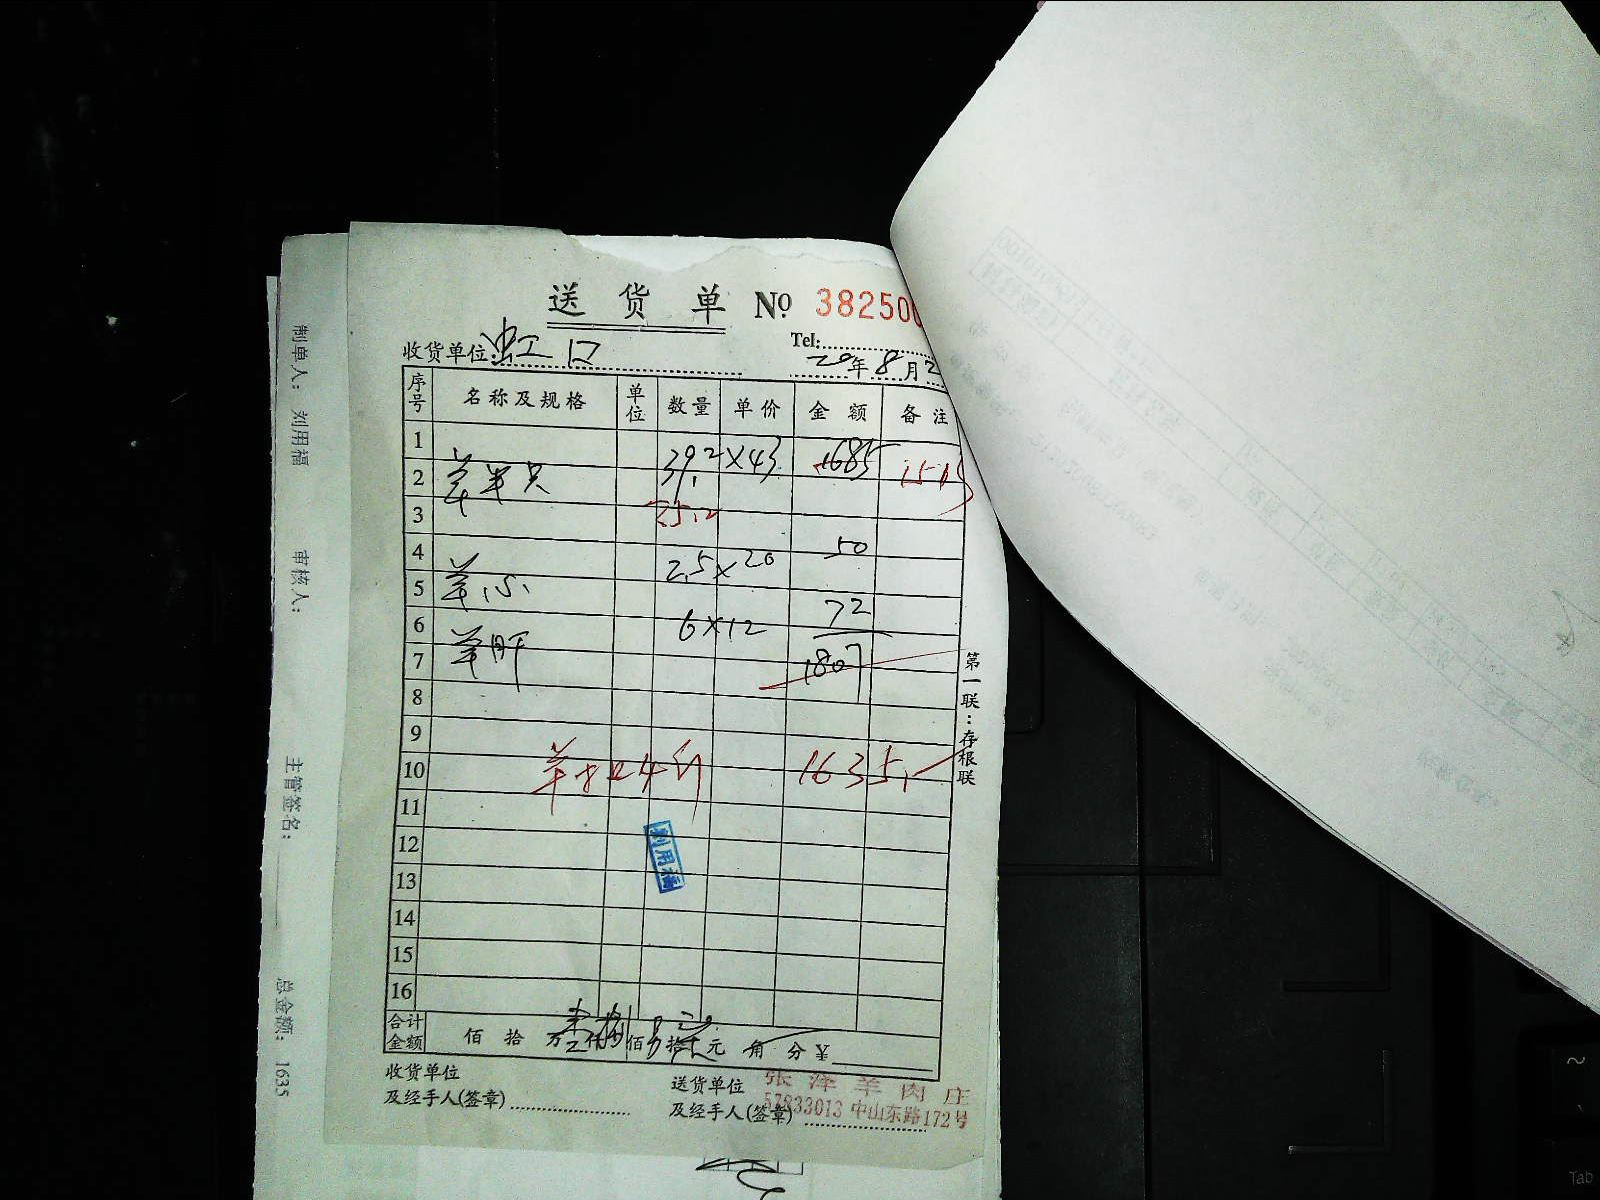 送 货 单 № 38250
收货单位: 虹口
Tel:
20年8月2
序号 名称及规格 单位 数量 单价 金额 备注
1
2 羊半只 39.2×43 1685
3 35.2
4
5 羊心 2.5×20 50
6
7 羊肝 6×12 72
1807
8
9
10 4斤 1635.
11
12
13
14
15
16
刘用福
合计金额 佰 拾 万 仟 佰 拾 元 角 分 ¥
收货单位
及经手人(签章)
送货单位
及经手人(签章)
张泽羊肉庄
57833013 中山东路172号
第一联:存根联
制单人: 刘用福
审核人:
主管签名:
总金额: 1635
~
Tab